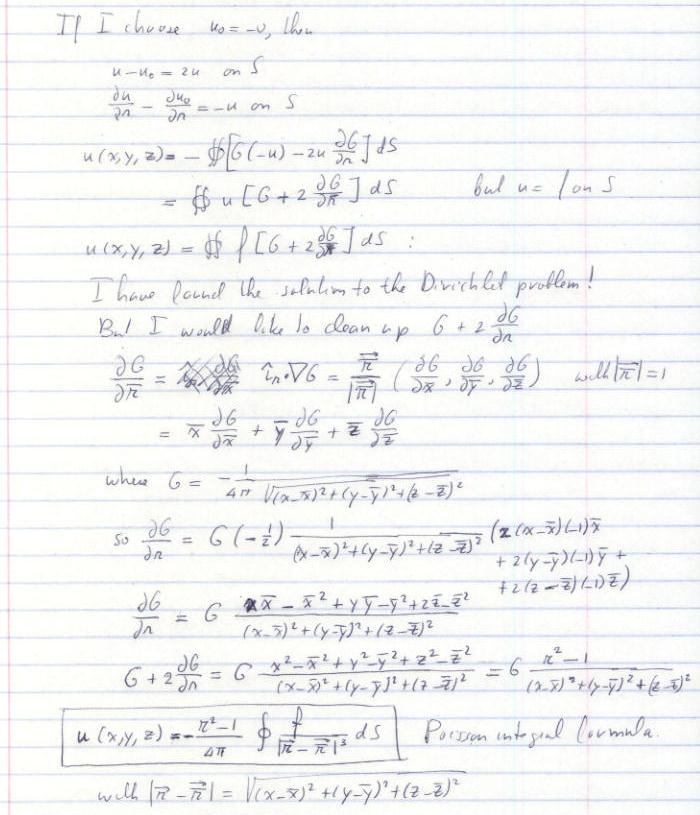 If I choose u₀ = -u, then
u - u₀ = 2u on S
∂u/∂n - ∂u₀/∂n = -u on S
u(x,y,z) = - ∯[G(-u) - 2u ∂G/∂n] dS
= ∯ u [G + 2 ∂G/∂n̄] dS but u = f on S
u(x,y,z) = ∯ f [G + 2 ∂G/∂n̄] dS :
I have found the solution to the Dirichlet problem!
But I would like to clean up G + 2 ∂G/∂n
∂G/∂r̄ = î_n·∇G = r̄⃗/|r̄⃗| (∂G/∂x̄, ∂G/∂ȳ, ∂G/∂z̄) with |r̄⃗| = 1
= x̄ ∂G/∂x̄ + ȳ ∂G/∂ȳ + z̄ ∂G/∂z̄
where G = - 1/4π 1/√((x-x̄)²+(y-ȳ)²+(z-z̄)²)
so ∂G/∂n = G (-1/2) 1/((x-x̄)²+(y-ȳ)²+(z-z̄)²) (2(x-x̄)(-1)x̄
+ 2(y-ȳ)(-1)ȳ +
+ 2(z-z̄)(-1)z̄)
∂G/∂n = G (xx̄ - x̄² + yȳ - ȳ² + zz̄ - z̄²)/((x-x̄)²+(y-ȳ)²+(z-z̄)²)
G + 2 ∂G/∂n = G (x² - x̄² + y² - ȳ² + z² - z̄²)/((x-x̄)²+(y-ȳ)²+(z-z̄)²) = G (r² - 1)/((x-x̄)²+(y-ȳ)²+(z-z̄)²)
u(x,y,z) = - (r²-1)/4π ∮ f/|r⃗ - r̄⃗|³ dS Poisson integral formula.
with |r⃗ - r̄⃗| = √((x-x̄)²+(y-ȳ)²+(z-z̄)²)